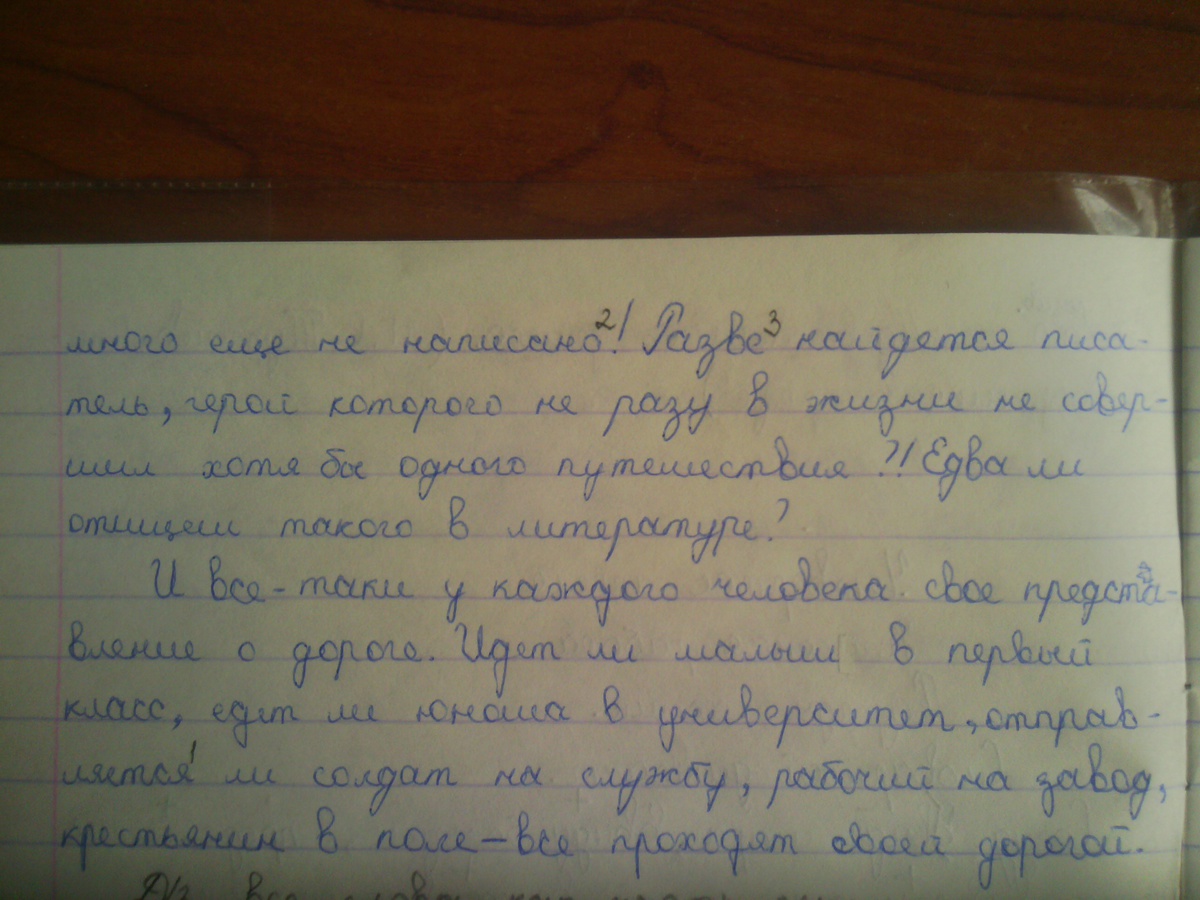 много еще не написано²! Разве³ найдется писа-
тель, герой которого не разу в жизни не совер-
шил хотя бы одного путешествия?! Едва ли
отыщеш такого в литературе?
И все-таки у каждого человека свое предста-
вление о дороге. Идет ли малыш в первый
класс, едет ли юноша в университет, отправ-
ляется¹ ли солдат на службу, рабочий на завод,
крестьянин в поле – все проходят своей дорогой.